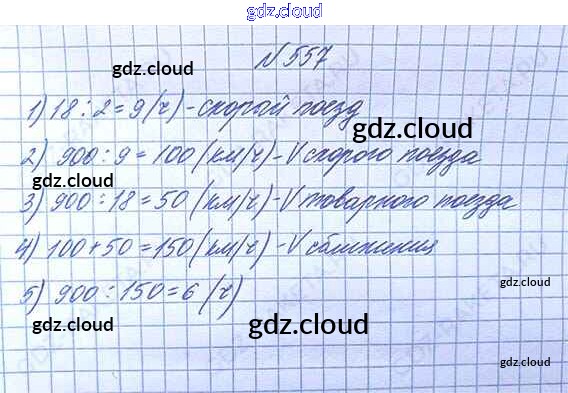 gdz.cloud
№ 557
gdz.cloud
1) 18 : 2 = 9 (ч) - скорой поезд
gdz.cloud
2) 900 : 9 = 100 (км/ч) - V скорого поезда
gdz.cloud
3) 900 : 18 = 50 (км/ч) - V товарного поезда
gdz.cloud
4) 100 + 50 = 150 (км/ч) - V сближения
gdz.cloud gdz.cloud
5) 900 : 150 = 6 (ч)
gdz.cloud gdz.cloud
gdz.cloud
gdz.cloud